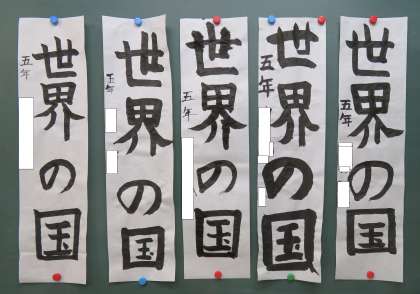 世界の国
五年
世界の国
五年
世界の国
五年
世界の国
五年
世界の国
五年